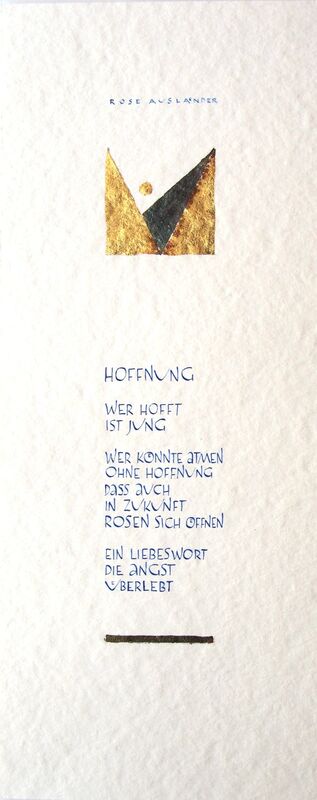 ROSE AUSLÆNDER
HOFFNUNG
WER HOFFT
IST JUNG
WER KÖNNTE ATMEN
OHNE HOFFNUNG
DASS AUCH
IN ZUKUNFT
ROSEN SICH ÖFFNEN
EIN LIEBESWORT
DIE ANGST
ÜBERLEBT